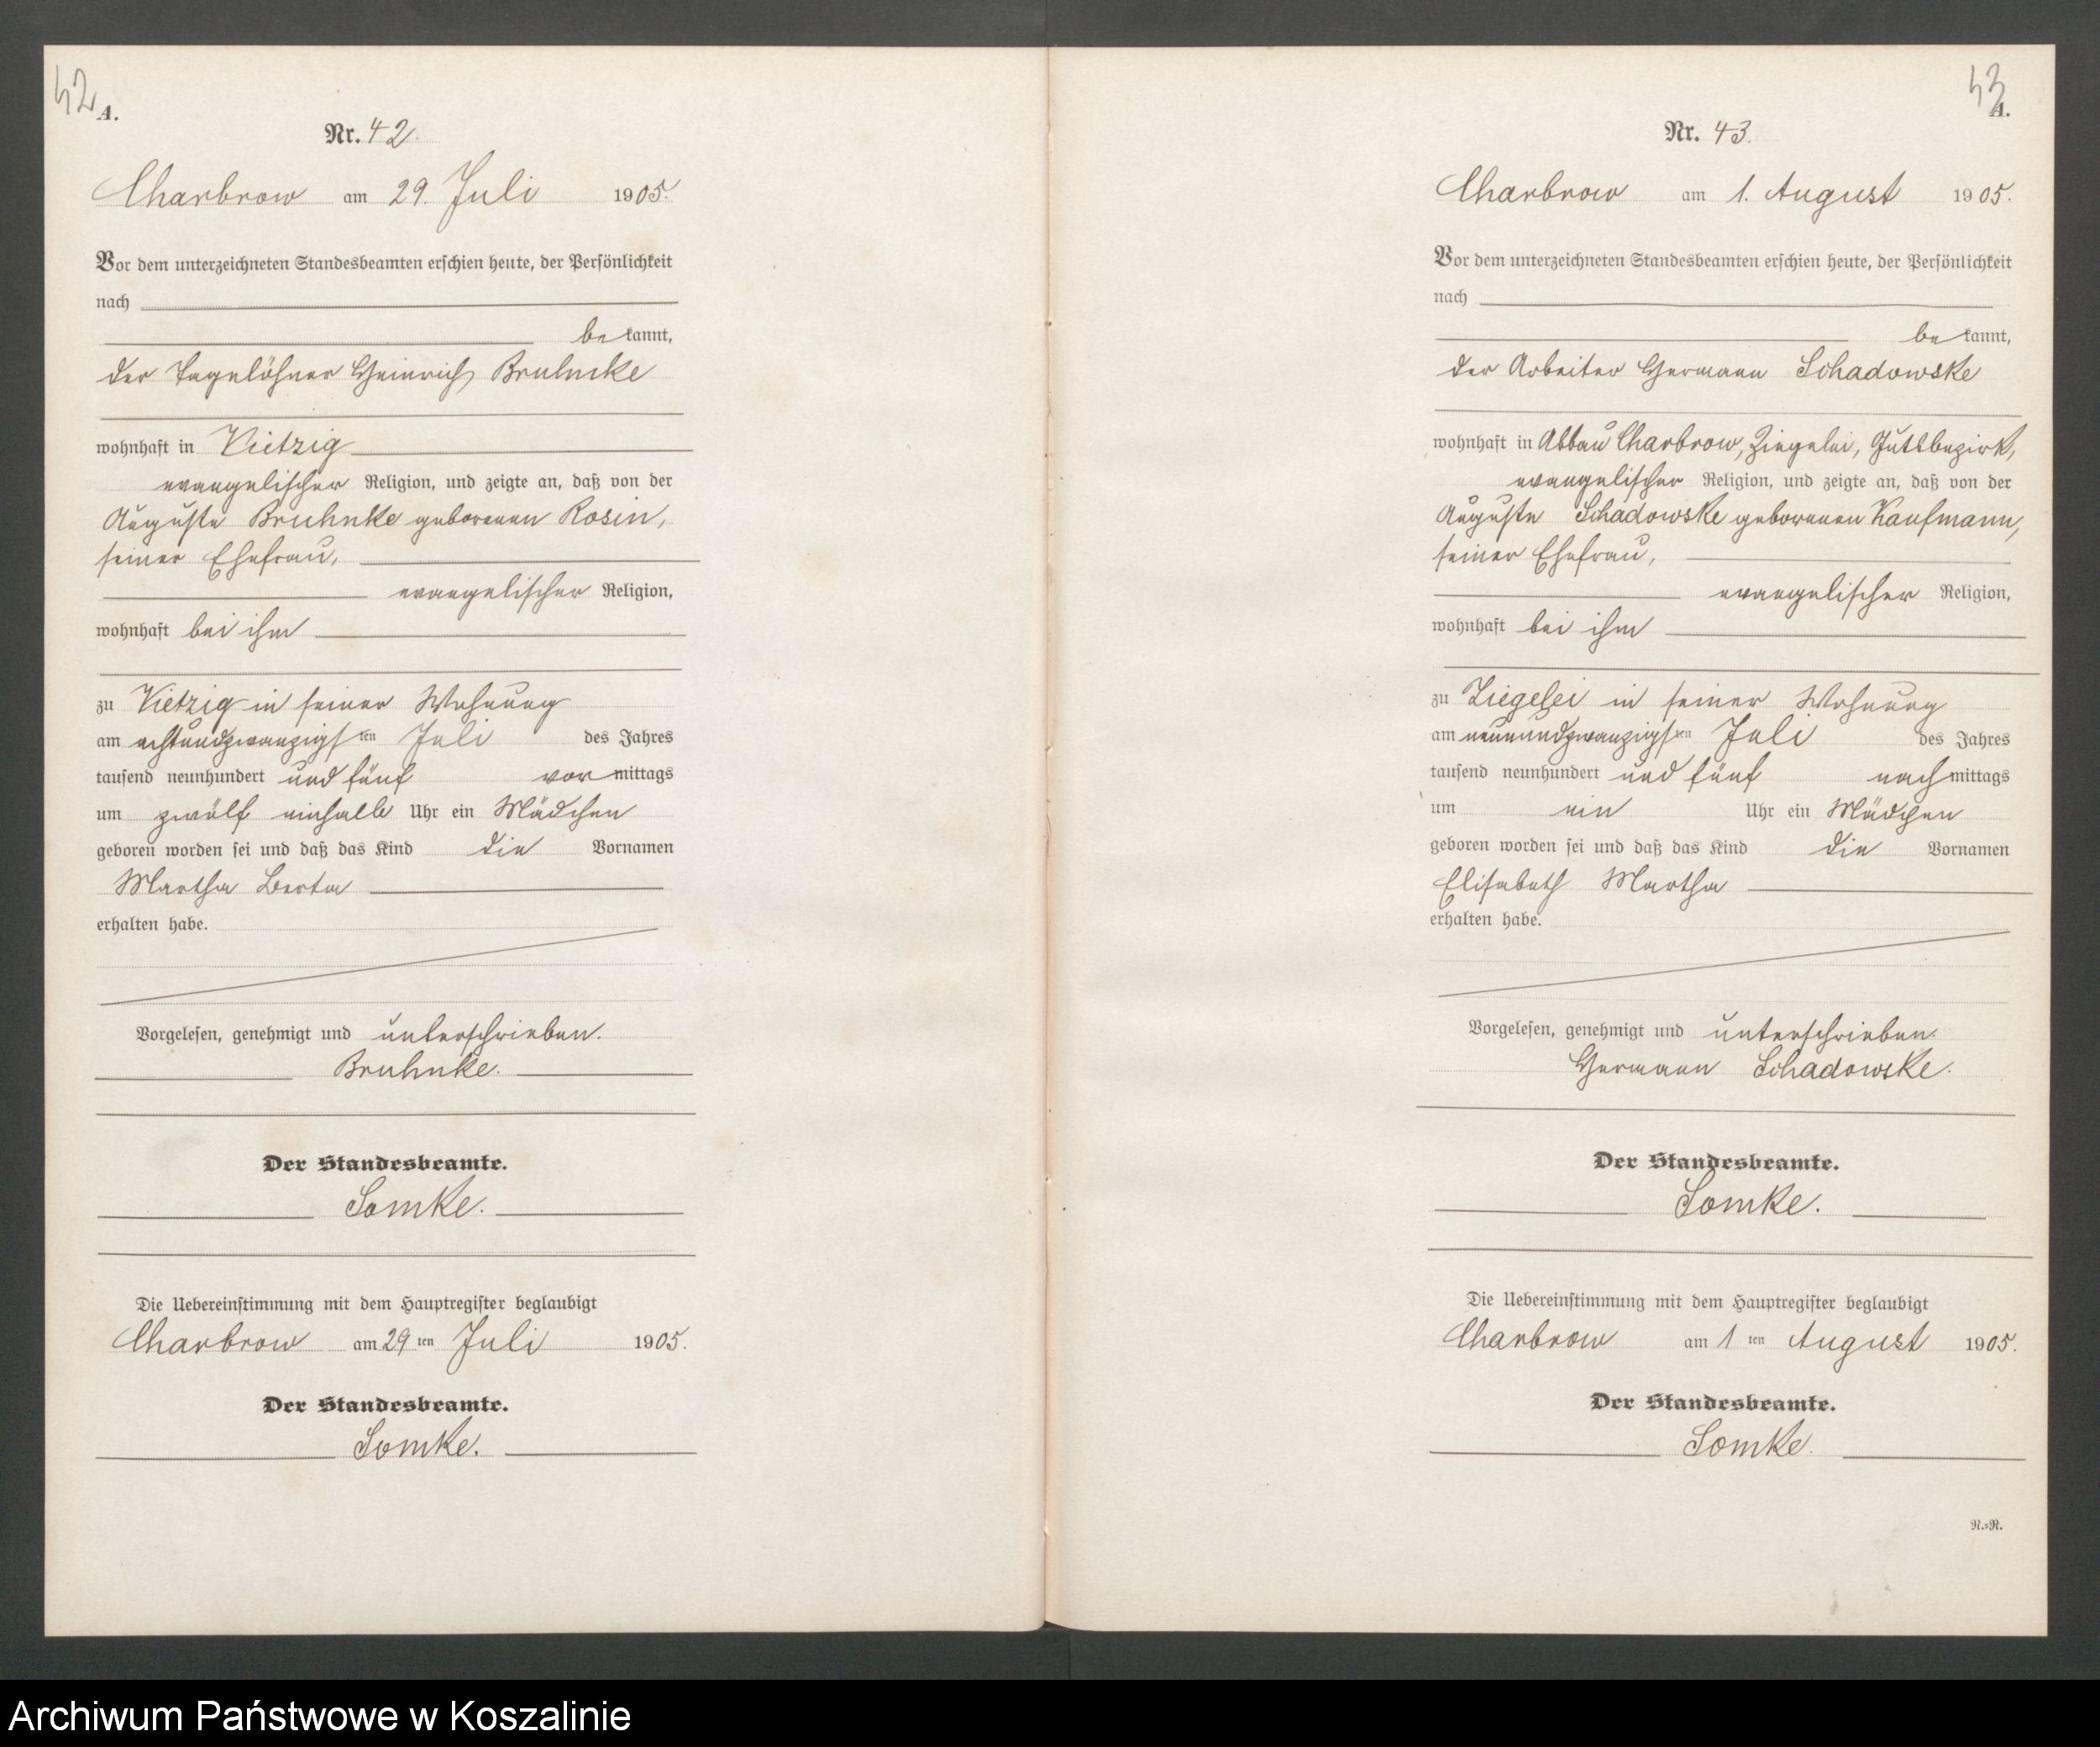 42
A.
Nr. 42.
Charbrow am 29. Juli 1905.
Vor dem unterzeichneten Standesbeamten erschien heute, der Persönlichkeit
nach
be kannt,
der Tagelöhner Heinrich Bruhnke
wohnhaft in Vietzig
evangelischer Religion, und zeigte an, daß von der
Auguste Bruhnke geborenen Rosin,
seiner Ehefrau,
evangelischer Religion,
wohnhaft bei ihm
zu Vietzig in seiner Wohnung
am achtundzwanzigsten Juli des Jahres
tausend neunhundert und fünf vor mittags
um zwölf einhalb Uhr ein Mädchen
geboren worden sei und daß das Kind die Vornamen
Martha Berta
erhalten habe.
Vorgelesen, genehmigt und unterschrieben.
Bruhnke.
Der Standesbeamte.
Somke.
Die Uebereinstimmung mit dem Hauptregister beglaubigt
Charbrow am 29 ten Juli 1905.
Der Standesbeamte.
Somke.
43
A.
Nr. 43.
Charbrow am 1. August 1905.
Vor dem unterzeichneten Standesbeamten erschien heute, der Persönlichkeit
nach
be kannt,
der Arbeiter Hermann Schadowske
wohnhaft in Abbau Charbrow, Ziegelei, Gutsbezirk,
evangelischer Religion, und zeigte an, daß von der
Auguste Schadowske geborenen Kaufmann,
seiner Ehefrau,
evangelischer Religion,
wohnhaft bei ihm
zu Ziegelei in seiner Wohnung
am neunundzwanzigsten Juli des Jahres
tausend neunhundert und fünf nach mittags
um ein Uhr ein Mädchen
geboren worden sei und daß das Kind die Vornamen
Elisabeth Martha
erhalten habe.
Vorgelesen, genehmigt und unterschrieben.
Hermann Schadowske.
Der Standesbeamte.
Somke.
Die Uebereinstimmung mit dem Hauptregister beglaubigt
Charbrow am 1 ten August 1905.
Der Standesbeamte.
Somke.
R.=R.
Archiwum Państwowe w Koszalinie